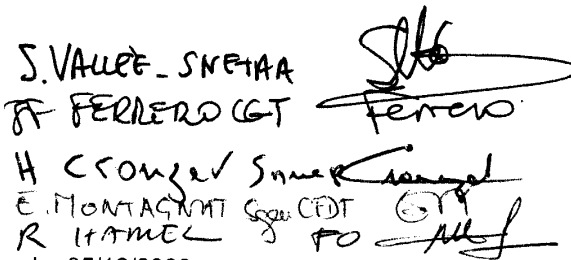 S. VALLÉE - SNETAA
JF FERRERO CGT Ferrero
H Cronzev Snuep
E. MONTAGNAT Sgen CFDT
R HAMEL FO